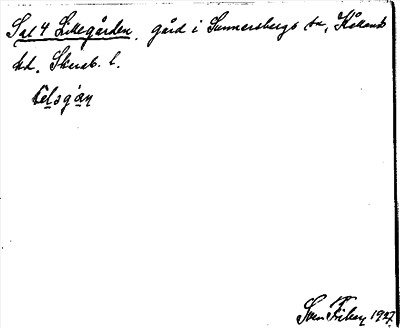 Sal 4 Lillegården, gård i Sunnersbergs sn, Kållands
hd. Skarab. l.
Sven Fribey 1927